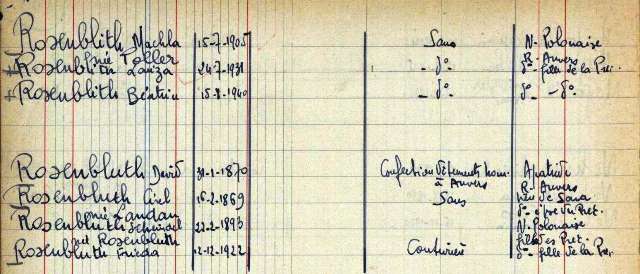 Rosenblith Machla 15-7-1905 Sans N. Polonaise
née Toller R. Anvers
Rosenblith Louiza 24-7-1931 - d°- d°- fille de la Préc.
Rosenblith Béatrice 15-8-1940 - d°- d°- - d°-
Rosenbluth David 30-1-1870 Confection Vêtements hom. Apatride
à Anvers R. Anvers
Rosenbluth 16-2-1869 Sans
née Landau d°- épse du Préc.
Rosenbluth 22-2-1893 N. Polonaise
née Rosenbluth fille des Préc.
Rosenbluth Frieda 12-12-1922 Couturière d°- fille de la Préc.